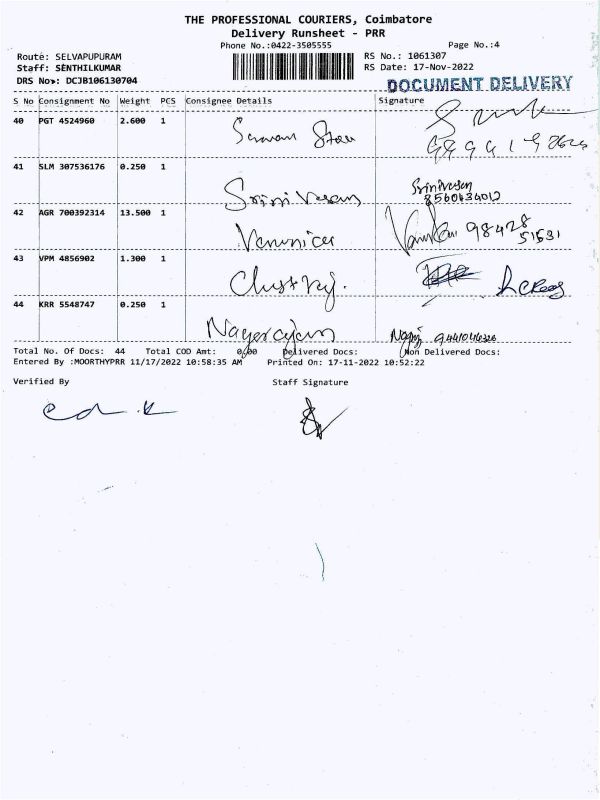 THE PROFESSIONAL COURIERS, Coimbatore
Delivery Runsheet - PRR
Phone No.:0422-3505555 Page No.:4
Route: SELVAPUPURAM RS No.: 1061307
Staff: SENTHILKUMAR RS Date: 17-Nov-2022
DRS No: DCJB106130704 DOCUMENT DELIVERY
S No Consignment No Weight PCS Consignee Details Signature
40 PGT 4524960 2.600 1
41 SLM 307536176 0.250 1
Srinivasan Srinivasan
8560434012
42 AGR 700392314 13.500 1
98428
51531
43 VPM 4856902 1.300 1
44 KRR 5548747 0.250 1
Nagarajan
Total No. Of Docs: 44 Total COD Amt: 0.00 Delivered Docs: Non Delivered Docs:
Entered By :MOORTHYPRR 11/17/2022 10:58:35 AM Printed On: 17-11-2022 10:52:22
Verified By Staff Signature